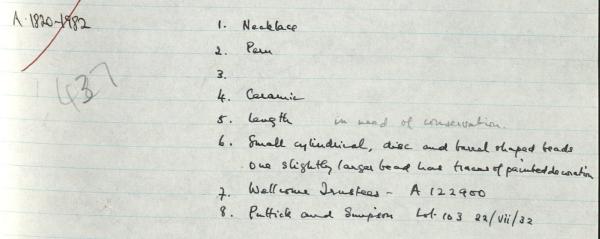 A.1820-1982
437
1. Necklace
2. Peru
3.
4. Ceramic
5. length in need of conservation.
6. Small cylindrical, disc and barrel shaped beads
one slightly larger bead has traces of painted decoration
7. Wellcome Trustees - A 122900
8. Puttick and Simpson Lot. 103 22/vii/32